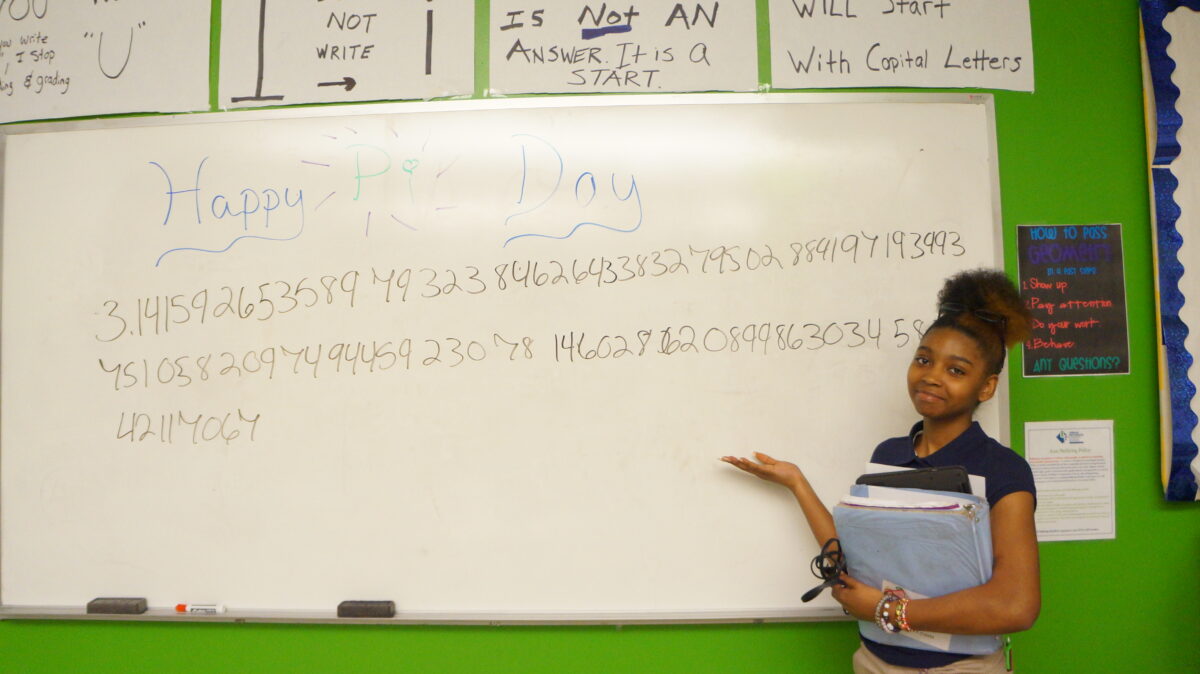 YOU
you write
I Stop
& grading
"U"
NOT
WRITE
IS Not AN
ANSWER. It is a
START.
WILL Start
With Capital Letters
Happy Pi Day
3.141592653589 79 323 8462643383279502 884197193993
751058209749445923078 1460281620899863034 58
42117067
HOW TO PASS
GEOMETRY
IN 4 EASY STEPS
1. Show up
2. Pay attention
3. Do your work.
4. Behave.
ANY QUESTIONS?